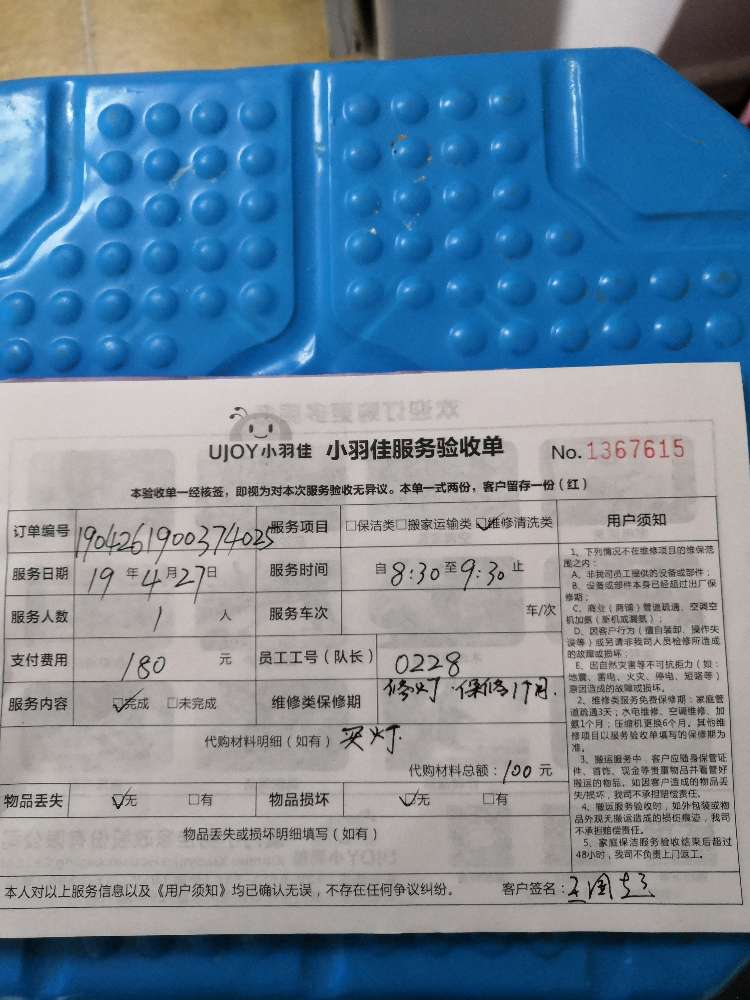 UJOY小羽佳 小羽佳服务验收单 No. 1367615
本验收单一经核签，即视为对本次服务验收无异议。本单一式两份，客户留存一份（红）
订单编号 1904261900374025 服务项目 □保洁类□搬家运输类☑维修清洗类
服务日期 19年4月27日 服务时间 自8:30至9:30止
服务人数 1 人 服务车次 车/次
支付费用 180 元 员工工号（队长） 0228
服务内容 ☑完成 □未完成 维修类保修期 修灯 保修1个月.
代购材料明细（如有） 买灯.
代购材料总额：100元
物品丢失 ☑无 □有 物品损坏 ☑无 □有
物品丢失或损坏明细填写（如有）
本人对以上服务信息以及《用户须知》均已确认无误，不存在任何争议纠纷。 客户签名：
用户须知
1、下列情况不在维修项目的维保范
围之内：
A、非我司员工提供的设备或部件；
B、设备或部件本身已经超过出厂保
修期；
C、商业（商铺）管道疏通、空调空
机加氨（新机或漏氨）；
D、因客户行为（擅自装卸、操作失
误等）或另请非我司人员检修所造成
的故障或损坏；
E、因自然灾害等不可抗拒力（如：
地震、雷电、火灾、停电、短路等）
原因造成的故障或损坏。
2、维修类服务免费保修期：家庭管
道疏通3天；水电维修、空调维修、加
氨1个月；压缩机更换6个月。其他维
修项目以服务验收单填写的保修期为
准。
3、搬运服务中，客户应随身保管证
件、首饰、现金等贵重物品并看管好
搬运的物品。如因客户造成的物品丢
失/损坏，我司不承担赔偿责任。
4、搬运服务验收时，如外包装或物
品外观无搬运造成的损伤痕迹，我司
不承担赔偿责任。
5、家庭保洁服务验收结束后超过
48小时，我司不负责上门返工。